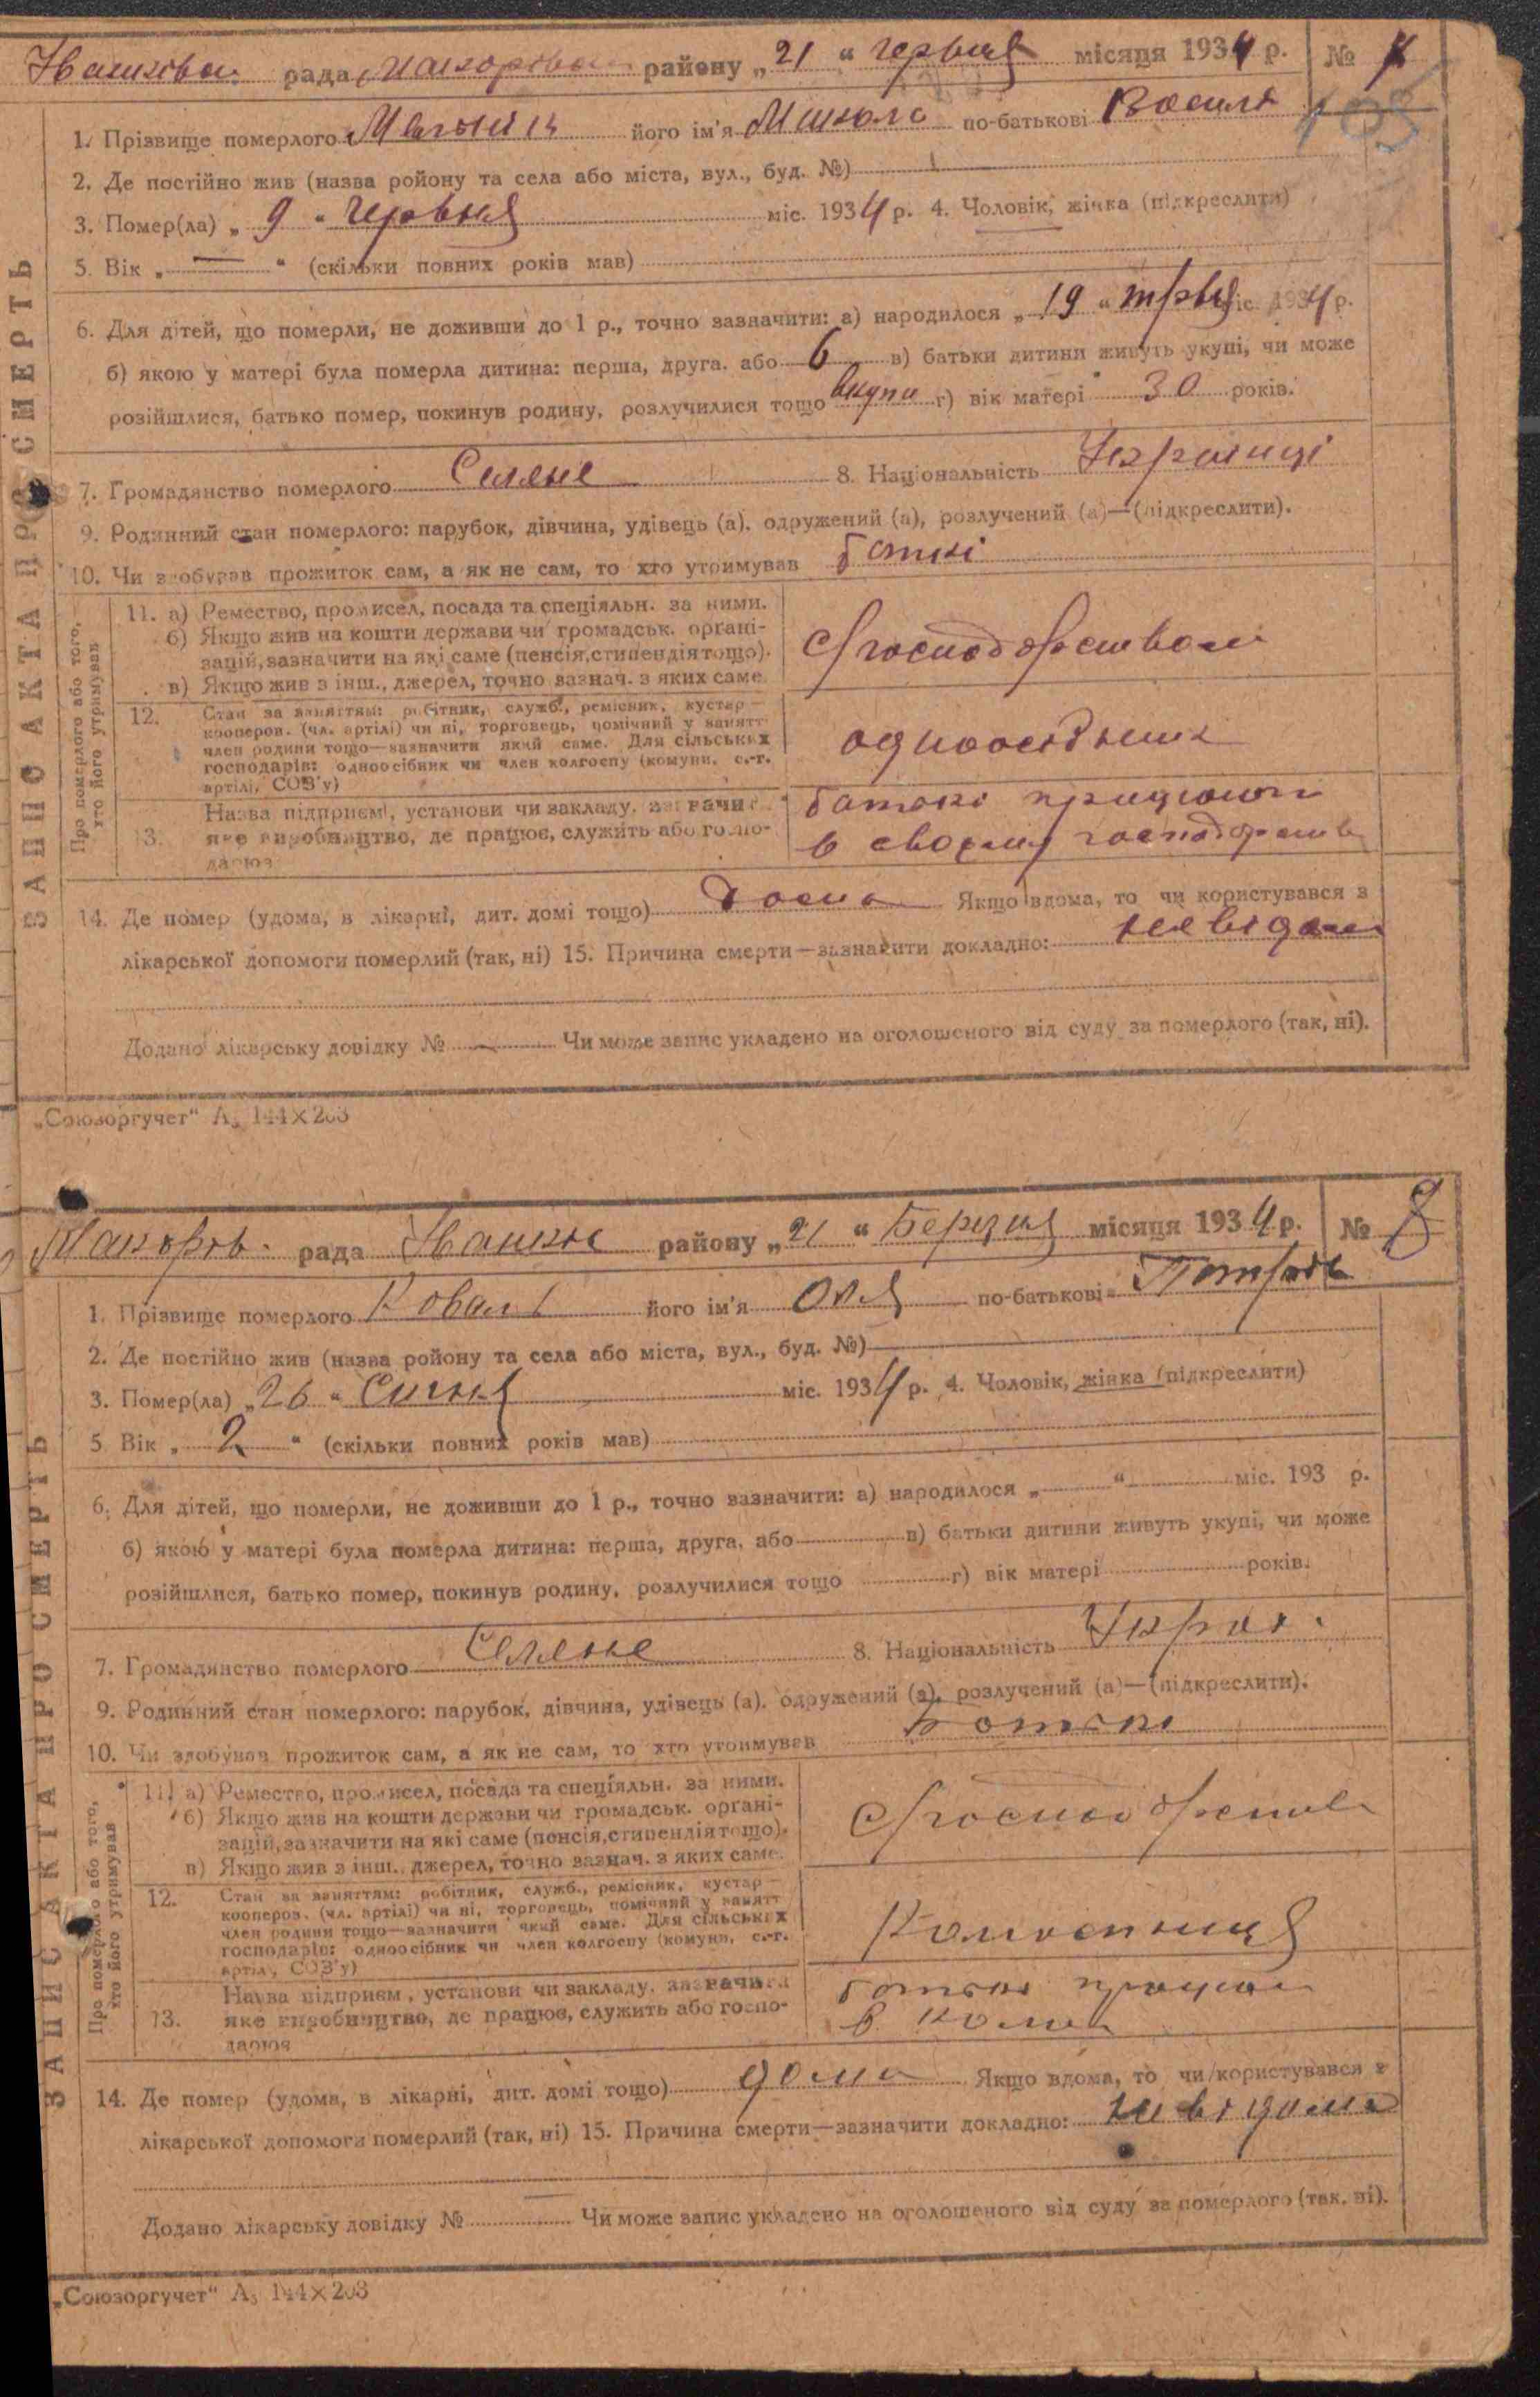 рада району „21“ червця місяця 1934 р. №
1. Прізвище померлого його ім'я Микола по-батькові Василь
2. Де постійно жив (назва ройону та села або міста, вул., буд. №)
3. Помер(ла) „9“ червня міс. 1934 р. 4. Чоловік, жінка (підкреслити)
5. Вік „—“ (скільки повних років мав)
6. Для дітей, що померли, не доживши до 1 р., точно зазначити: а) народилося „19“ міс. 1934 р.
б) якою у матері була померла дитина: перша, друга, або 6 в) батьки дитини живуть укупі, чи може
розійшлися, батько помер, покинув родину, розлучилися тощо вкупи г) вік матері 30 років.
7. Громадянство померлого Селяне 8. Національність Українці
9. Родинний стан померлого: парубок, дівчина, удівець (а), одружений (а), розлучений (а)—(підкреслити).
10. Чи здобував прожиток сам, а як не сам, то хто утримував батькі
ЗАПИС АКТА ПРО СМЕРТЬ
Про померлого або того,
хто його утримував
11. а) Ремество, промисел, посада та спеціяльн. за ними.
б) Якщо жив на кошти держави чи громадськ. органі-
зацій, зазначити на які саме (пенсія, стипендія тощо).
в) Якщо жив з інш., джерел, точно зазнач. з яких саме.
12. Стан за заняттям: робітник, служб., ремісник, кустар—
кооперов. (чл. артілі) чи ні, торговець, помічний у занятт
член родини тощо—зазначити який саме. Для сільських
господарів: одноосібник чи член колгоспу (комуни, с.-г.
артілі, СОЗ'у)
одноосібник
13. Назва підприєм, установи чи закладу, зазначити
яке виробництво, де працює, служить або госпо-
дарює
батькі працюют
в своєму господарстві
14. Де помер (удома, в лікарні, дит. домі тощо) дома Якщо вдома, то чи користувався з
лікарської допомоги померлий (так, ні) 15. Причина смерти—зазначити докладно: невідома
Додано лікарську довідку № — Чи може запис укладено на оголошеного від суду за померлого (так, ні).
„Союзоргучет“ А₅ 144×203
Макоров. рада району „21“ Березня місяця 1934 р. № 8
1. Прізвище померлого Коваль його ім'я Оля по-батькові
2. Де постійно жив (назва ройону та села або міста, вул., буд. №)
3. Помер(ла) „26“ Сичня міс. 1934 р. 4. Чоловік, жінка (підкреслити)
5. Вік „2“ (скільки повних років мав)
6. Для дітей, що померли, не доживши до 1 р., точно зазначити: а) народилося „ “ міс. 193 р.
б) якою у матері була померла дитина: перша, друга, або в) батьки дитини живуть укупі, чи може
розійшлися, батько помер, покинув родину, розлучилися тощо г) вік матері років.
7. Громадянство померлого Селяне 8. Національність
9. Родинний стан померлого: парубок, дівчина, удівець (а), одружений (а), розлучений (а)—(підкреслити).
10. Чи здобував прожиток сам, а як не сам, то хто утримував Батькі
ЗАПИС АКТА ПРО СМЕРТЬ
Про померлого або того,
хто його утримував
11. а) Ремество, промисел, посада та спеціяльн. за ними.
б) Якщо жив на кошти держави чи громадськ. органі-
зацій, зазначити на які саме (пенсія, стипендія тощо).
в) Якщо жив з інш., джерел, точно зазнач. з яких саме.
12. Стан за заняттям: робітник, служб., ремісник, кустар—
кооперов. (чл. артілі) чи ні, торговець, помічний у занятт
член родини тощо—зазначити який саме. Для сільських
господарів: одноосібник чи член колгоспу (комуни, с.-г.
артілі, СОЗ'у)
13. Назва підприєм, установи чи закладу, зазначити
яке виробництво, де працює, служить або госпо-
дарює
14. Де помер (удома, в лікарні, дит. домі тощо) дома Якщо вдома, то чи користувався з
лікарської допомоги померлий (так, ні) 15. Причина смерти—зазначити докладно: невідома
Додано лікарську довідку № Чи може запис укладено на оголошеного від суду за померлого (так, ні).
„Союзоргучет“ А₅ 144×203